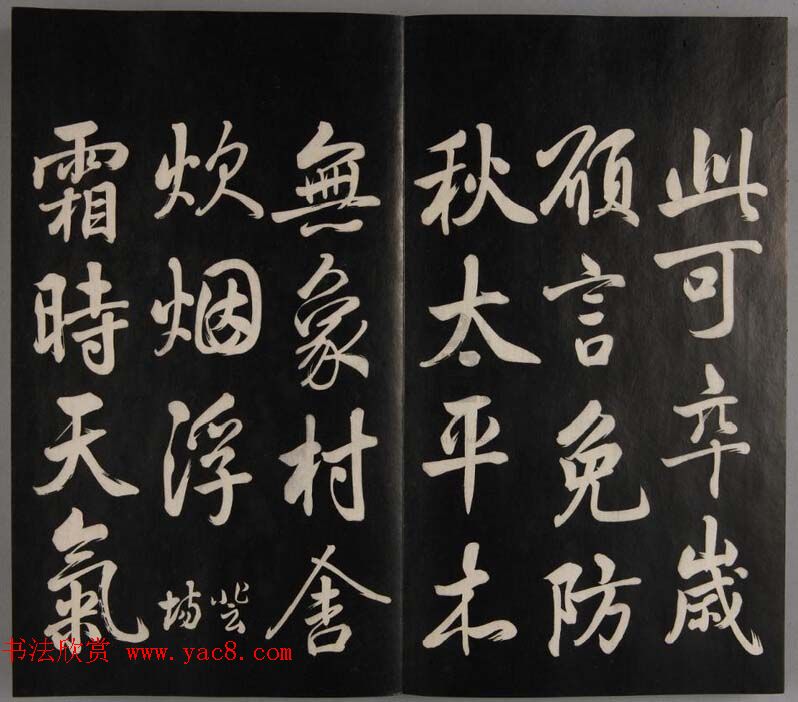 此可卒歲
願言免防
秋太平本
無象村舍
炊烟浮
霜時天氣
书法欣赏 www.yac8.com